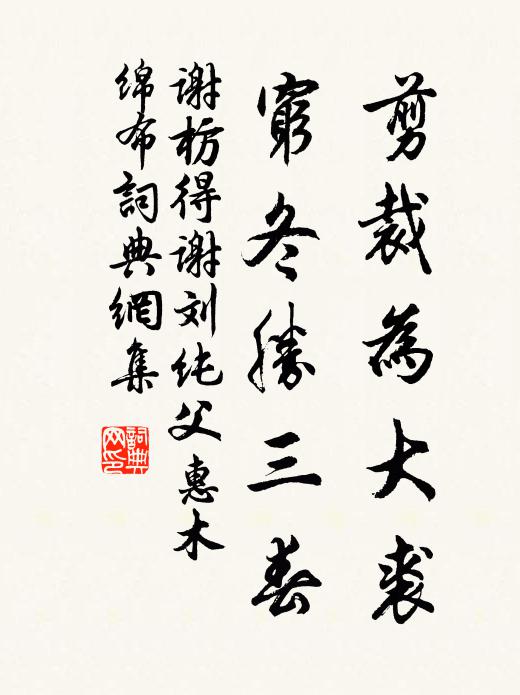 剪裁為大裘
窮冬勝三春
谢枋得谢刘纯父惠木
绵布詞典網集
詞典网印